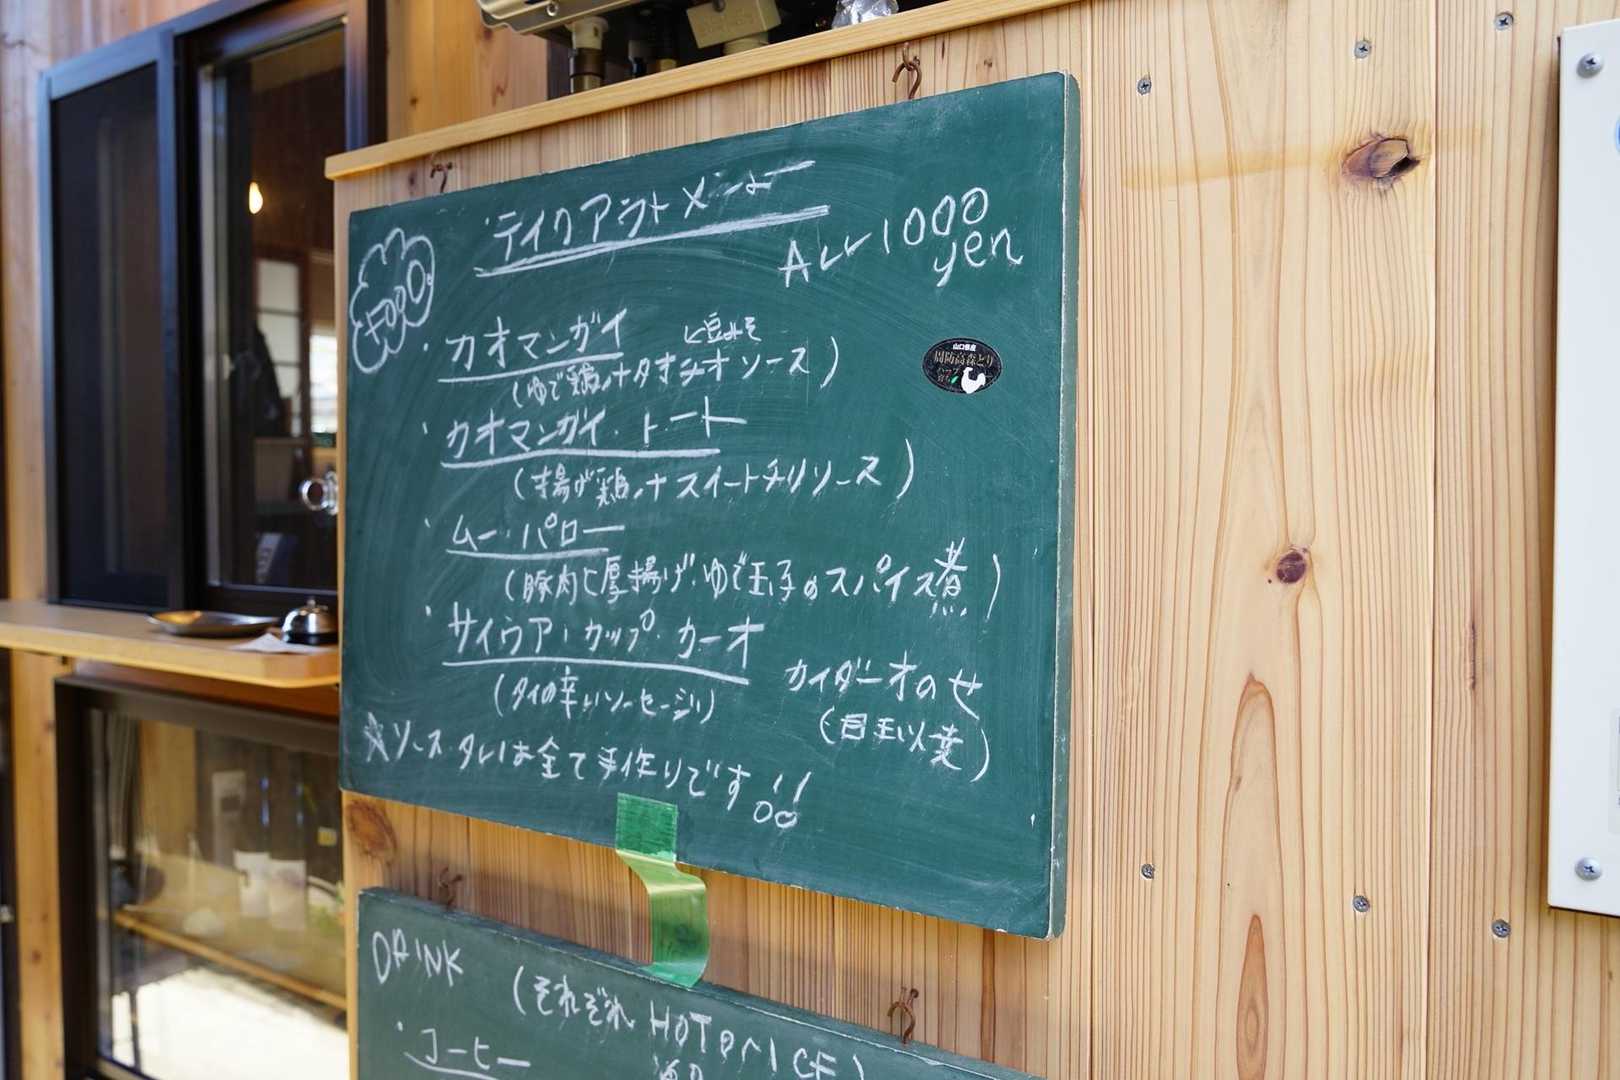 ・テイクアウトメニュー
ALL 1000
yen
FOOD
・カオマンガイ
と豆みそ
(ゆで鶏+タオチオソース)
・カオマンガイ・トート
(揚げ鶏+スイートチリソース)
・ムー・パロー
(豚肉と厚揚げ・ゆで玉子のスパイス煮)
・サイウア・カップ・カーオ
(タイの辛いソーセージ)
カイダーオのせ
(目玉
☆ソース・タレは全て手作りです!!
山口県産
周防高森どり
DRINK
(それぞれHOT
・コーヒー